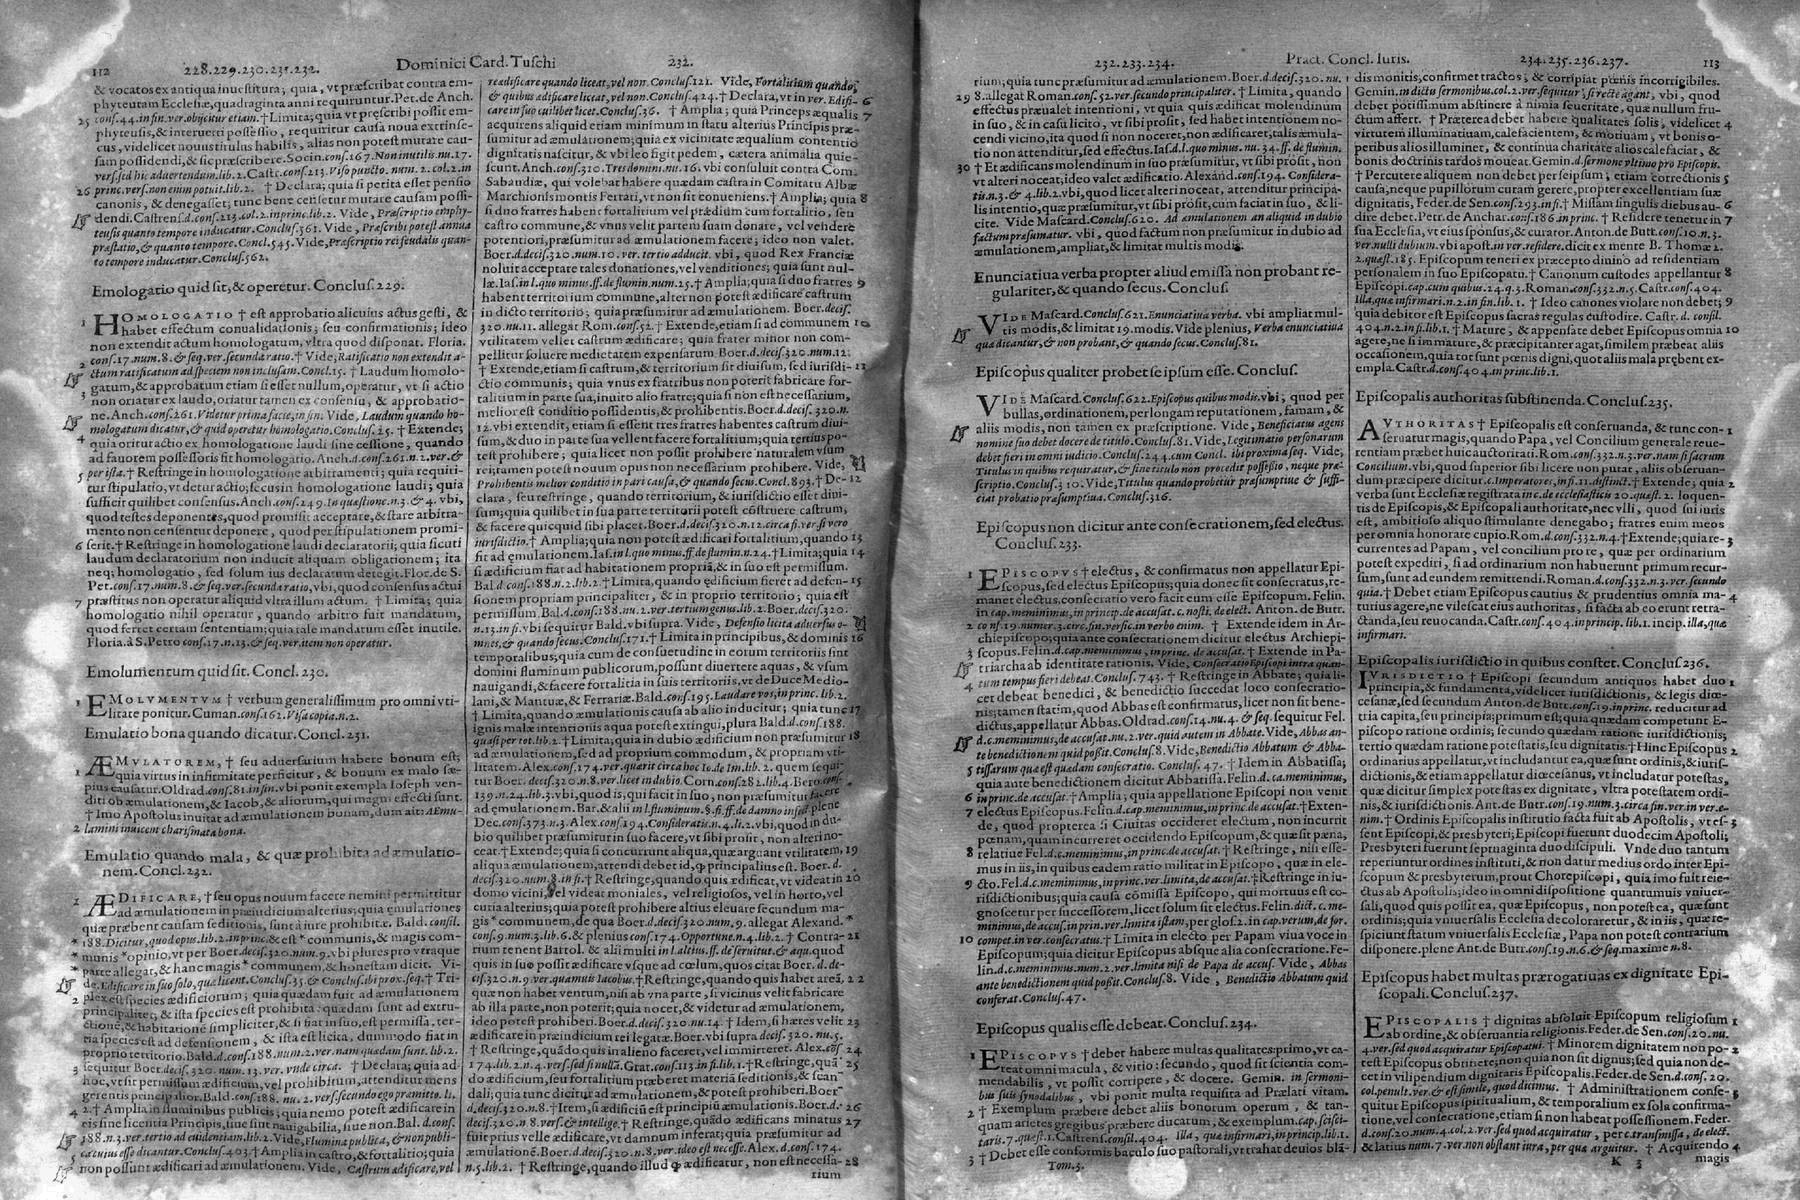 112 228.229.230.231.232. Dominici Card. Tuschi 232.
& vocatos ex antiqua inuestitura; quia, vt præscribat contra em-
phyteutam Ecclesiæ, quadraginta anni requiruntur. Pet. de Anch.
25 cons.44. in fin. ver. obijcitur etiam. † Limita; quia vt pręscribi possit em-
phyteusis, & interuerti possessio, requiritur causa noua extrinse-
cus, videlicet noui stitulus habilis, alias non potest mutare cau-
sam possidendi, & sic præscribere. Socin. cons.167. Non inutilis nu.17.
vers. sed hic aduertendum. lib.2. Castr. cons.213. Viso puncto. num.2. col.2. in
26 princ. ver. non enim potuit. lib.2. † Declara; quia si petita esset pensio
canonis, & denegasset; tunc bene censetur mutare causam possi-
dendi. Castrens. d. cons.213. col.2. in princ. lib.2. Vide, Præscriptio emphy-
teusis quanto tempore inducatur. Conclus.361. Vide, Præscribi potest annua
præstatio, & quanto tempore. Concl.545. Vide, Præscriptio rei feudalis quan-
to tempore inducatur. Conclus.562.
Emologatio quid sit, & operetur. Conclus.229.
1 HOMOLOGATIO † est approbatio alicuius actus gesti, &
habet effectum conualidationis; seu confirmationis; ideo
non extendit actum homologatum, vltra quod disponat. Floria.
cons.17. num.8. & seq. ver. secunda ratio. † Vide, Ratificatio non extendit a-
2 ctum ratificatum ad speciem non inclusam. Concl.15. † Laudum homolo-
gatum, & approbatum etiam si esset nullum, operatur, vt si actio
3 non oriatur ex laudo, oriatur tamen ex consensu, & approbatio-
ne. Anch. cons.261. Videtur prima facie, in fin. Vide, Laudum quando ho-
mologatum dicatur, & quid operetur homologatio. Conclus.25. † Extende;
4 quia oritur actio ex homologatione laudi sine cessione, quando
ad fauorem possessoris fit homologatio. Anch. d. cons.261. n.2. ver. &
5 per ista. † Restringe in homologatione arbitramenti; quia requiri-
tur stipulatio, vt detur actio; secus in homologatione laudi; quia
sufficit quilibet consensus. Anch. cons.249. In quæstione. n.3. & 4. vbi,
quod testes deponentes, quod promisit acceptare, & stare arbitra-
mento non censentur deponere, quod per stipulationem promi-
6 serit. † Restringe in homologatione laudi declaratorij; quia sicuti
laudum declaratorium non inducit aliquam obligationem; ita
neq; homologatio, sed solum ius declaratum detegit. Flor. de S.
Pet. cons.17. num.8. & seq. ver. secunda ratio, vbi, quod consensus actui
7 præstitus non operatur aliquid vltra illum actum. † Limita; quia
homologatio nihil operatur, quando arbitro fuit mandatum,
quod ferret certam sententiam; quia tale mandatum esset inutile.
Floria. à S. Petro cons.17. n.13. & seq. ver. item non operatur.
Emolumentum quid sit. Concl.230.
1 EMOLVMENTVM † verbum generalissimum pro omni vti-
litate ponitur. Cuman. cons.162. Visa copia. n.2.
Emulatio bona quando dicatur. Concl.231.
1 ÆMVLATOREM, † seu aduersarium habere bonum est;
quia virtus in infirmitate perficitur, & bonum ex malo sæ-
pius causatur. Oldrad. cons.81. in fin. vbi ponit exempla Ioseph ven-
diti ob æmulationem, & Iacob, & aliorum, qui magni effecti sunt.
† Imo Apostolus inuitat ad æmulationem bonam, dum ait: Æmu-
2 lamini inuicem charismata bona.
Emulatio quando mala, & quæ prohibita ad æmulatio-
nem. Concl.232.
1 ÆDIFICARE, † seu opus nouum facere nemini permittitur
ad æmulationem in præiudicium alterius; quia æmulationes
quæ præbent causam seditionis, sunt à iure prohibitæ. Bald. consil.
* 188. Dicitur, quod opus. lib.2. in princ. & est * communis, & magis com-
* munis * opinio, vt per Boer. decis.320. num.9. vbi plures pro vtraque
* parte allegat, & hanc magis * communem, & honestam dicit. Vi-
de, Edificare in suo solo, quæ licent. Conclus.35. & Conclus. ibi prox. seq. † Tri-
2 plex est species ædificiorum; quia quædam fuit ad æmulationem
principaliter, & ista species est prohibita: quædam sunt ad extru-
ctionē, & habitationē simpliciter, & si fiat in suo, est permissa, ter-
tia species est ad defensionem, & ista est licita, dummodo fiat in
proprio territorio. Bald. d. cons.188. num.2. ver. nam quædam sunt. lib.2.
3 sequitur Boer. decis.320. num.13. ver. vnde circa. † Declara; quia ad
hoc, vt sit permissum ædificium, vel prohibitum, attenditur mens
gerentis principalior. Bald. cons.188. nu.2. vers. secundo ego pramitto. li.
4 2. † Amplia in fluminibus publicis; quia nemo potest ædificare in
eis sine licentia Principis, siue sint nauigabilia, siue non. Bal. d. cons.
188. n.3. ver. tertio ad euidentiam. lib.2. Vide, Flumina publica, & non publi-
5 ca cuius esse dicantur. Conclus.403. † Amplia in castro, & fortalitio; quia
non possunt ædificari ad æmulationem. Vide, Castrum ædificare, vel
reædificare quando liceat, vel non. Conclus.121. Vide, Fortalitium quando,
& quibus ædificare liceat, vel non. Conclus.424. † Declara, vt in ver. Edifi- 6
care in suo cuilibet licet. Conclus.36. † Amplia; quia Princeps æqualis 7
acquirens aliquid etiam minimum in statu alterius Principis præ-
sumitur ad æmulationem; quia ex vicinitate æqualium contentio
dignitatis nascitur, & vbi leo figit pedem, cætera animalia quie-
scunt. Anch. cons.310. Tres domini. nu.16. vbi consuluit contra Com.
Sabaudiæ, qui volebat habere quædam castra in Comitatu Albæ
Marchionis montis Ferrati, vt non sit conueniens. † Amplia; quia 8
si duo fratres habent fortalitium vel prædium cum fortalitio, seu
castro commune, & vnus velit partem suam donare, vel vendere
potentiori, præsumitur ad æmulationem facere; ideo non valet.
Boer. d. decis.320. num.10. ver. tertio adducit. vbi, quod Rex Franciæ
noluit acceptare tales donationes, vel venditiones; quia sunt nul-
læ. Ias. in l. quo minus. ff. de flumin. num.25. † Amplia; quia si duo fratres 9
habent territorium commune, alter non potest ædificare castrum
in dicto territorio; quia præsumitur ad æmulationem. Boer. decis.
320. nu.11. allegat Rom. cons.52. † Extende, etiam si ad communem 10
vtilitatem vellet castrum ædificare; quia frater minor non com-
pellitur soluere medietatem expensarum. Boer. d. decis.320. num.12.
† Extende, etiam si castrum, & territorium sit diuisum, sed iurisdi- 11
ctio communis; quia vnus ex fratribus non poterit fabricare for-
talitium in parte sua, inuito alio fratre; quia si non est necessarium,
melior est conditio possidentis, & prohibentis. Boer. d. decis.320. n.
12. vbi extendit, etiam si essent tres fratres habentes castrum diui-
sum, & duo in parte sua vellent facere fortalitium; quia tertius po-
test prohibere; quia licet non possit prohibere naturalem vsum
rei; tamen potest nouum opus non necessarium prohibere. Vide,
Prohibentis melior conditio in pari causa, & quando secus. Concl.893. † De- 12
clara, seu restringe, quando territorium, & iurisdictio esset diui-
sum; quia quilibet in sua parte territorij potest cōstruere castrum,
& facere quicquid sibi placet. Boer. d. decis.320. n.12. circa fi. ver. si vero
iurisdictio. † Amplia; quia non potest ædificari fortalitium, quando 13
fit ad ęmulationem. Ias. in l. quo minus. ff. de flumin. n.24. † Limita; quia 14
si ædificium fiat ad habitationem propriā, & in suo est permissum.
Bal. d. cons.188. n.2. lib.2. † Limita, quando ędificium fieret ad defen- 15
sionem propriam principaliter, & in proprio territorio; quia est
permissum. Bal. d. cons.188. nu.2. ver. tertium genus. lib.2. Boer. d. decis.320.
n.13. in fi. vbi sequitur Bald. vbi supra. Vide, Defensio licita aduersus o-
mnes, & quando secus. Conclus.171. † Limita in principibus, & dominis 16
temporalibus; quia cum de consuetudine in eorum territoriis sint
domini fluminum publicorum, possunt diuertere aquas, & vsum
nauigandi, & facere fortalitia in suis territoriis, vt de Duce Medio-
lani, & Mantuæ, & Ferrariæ. Bald. cons.195. Laudare vos, in princ. lib.2.
† Limita, quando æmulationis causa ab alio inducitur; quia tunc 17
ignis malæ intentionis aqua potest extingui, plura Bald. d. cons.188.
quasi per tot. lib.2. † Limita; quia in dubio ædificium non præsumitur 18
ad æmulationem, sed ad proprium commodum, & propriam vti-
litatem. Alex. cons.174. ver. quarit circa hoc Io. de Im. lib.2. quem sequi-
tur Boer. decis.320. n.8. ver. licet in dubio. Corn. cons.282. lib.4. Bero. cons.
139. n.24. lib.3. vbi, quod is, qui facit in suo, non præsumitur facere
ad ęmulationem. Bar. & alii in l. fluminum. §. fi. ff. de damno infect. plene
Dec. cons.373. n.3. Alex. cons.194. Consideratis. n.4. li.2. vbi, quod in du-
bio quilibet præsumitur in suo facere, vt sibi prosit, non alteri no-
ceat. † Extende; quia si concurrunt aliqua, quæ arguant vtilitatem, 19
aliqua æmulationem, attendi debet id, quod principalius est. Boer. d.
decis.320. num.8. in fi. † Restringe, quando quis ædificat, vt videat in 20
domo vicini, vel videat moniales, vel religiosos, vel in horto, vel
curia alterius; quia potest prohibere altius eleuare secundum ma-
gis * communem, de qua Boer. d. decis.320. num.9. allegat Alexand. *
cons.9. num.3. lib.6. & plenius cons.174. Opportune. n.4. lib.2. † Contra- 21
rium tenent Bartol. & alii multi in l. altius. ff. de seruitut. & aqu. quod
quis in suo possit ædificare vsque ad cœlum, quos citat Boer. d. de-
cis.320. n.9. ver. quamuis Iacobus. † Restringe, quando quis habet areā, 22
quæ non habet ventum, nisi ab vna parte, si vicinus velit fabricare
ab illa parte, non poterit; quia nocet, & videtur ad æmulationem,
ideo potest prohiberi. Boer. d. decis.320. nu.14. † Idem, si hæres velit 23
ædificare in præiudicium rei legatæ. Boer. vbi supra decis.320. nu.5.
† Restringe, quādo quis in alieno faceret, vel immitteret. Alex. cos. 24
174. lib.2. n.4. vers. sed si nulla. Grat. cons.113. in fi. lib.1. † Restringe, quā 25
do ædificium, seu fortalitium præberet materiā seditionis, & scan-
dali; quia tunc dicitur ad ęmulationem, & potest prohiberi. Boer.
d. decis.320. n.8. † Item, si ædificiū est principiū æmulationis. Boer. d. 26
decis.320. n.8. vers. & intellige. † Restringe, quādo ædificans minatus 27
fuit prius velle ædificare, vt damnum inferat; quia præsumitur ad
æmulationē. Boer. d. decis.320. n.8. ver. ideo est necesse. Alex. d. cons.174.
n.5. lib.2. † Restringe, quando illud q̨ ædificatur, non est necessa- 28
rium
232.233.234. Pract. Concl. Iuris. 234.235.236.237. 113
rium; quia tunc præsumitur ad æmulationem. Boer. d. decis.320. nu.
29 8. allegat Roman. cons.52. ver. secundo principaliter. † Limita, quando
effectus præualet intentioni, vt quia quis ædificat molendinum
in suo, & in casu licito, vt sibi prosit, sed habet intentionem no-
cendi vicino, ita quod si non noceret, non ædificaret; talis æmula-
tio non attenditur, sed effectus. Ias. d. l. quo minus. nu.34. ff. de flumin.
30 † Et ædificans molendinum in suo præsumitur, vt sibi prosit, non
vt alteri noceat; ideo valet ædificatio. Alexand. cons.194. Considera-
tis. n.3. & 4. lib.2. vbi, quod licet alteri noceat, attenditur principa-
lis intentio, quæ præsumitur, vt sibi prosit, cum faciat in suo, & li-
cite. Vide Mascard. Conclus.620. Ad æmulationem an aliquid in dubio
factum præsumatur. vbi, quod factum non præsumitur in dubio ad
æmulationem, ampliat, & limitat multis modis.
Enunciatiua verba propter aliud emissa non probant re-
gulariter, & quando secus. Conclus.
VIDE Mascard. Conclus.621. Enunciatiua verba. vbi ampliat mul-
tis modis, & limitat 19. modis. Vide plenius, Verba enunciatiua
quæ dicantur, & non probant, & quando secus. Conclus.81.
Episcopus qualiter probet se ipsum esse. Conclus.
VIDE Mascard. Conclus.622. Episcopus quibus modis. vbi, quod per
bullas, ordinationem, per longam reputationem, famam, &
aliis modis, non tamen ex præscriptione. Vide, Beneficiatus agens
nomine suo debet docere de titulo. Conclus.81. Vide, Legitimatio personarum
debet fieri in omni iudicio. Conclus.244. cum Concl. ibi proxima seq. Vide,
Titulus in quibus requiratur, & sine titulo non procedit possessio, neque præ-
scriptio. Conclus.310. Vide, Titulus quando probetur præsumptiue & suffi-
ciat probatio præsumptiua. Conclus.316.
Episcopus non dicitur ante consecrationem, sed electus.
Conclus.233.
1 EPISCOPVS † electus, & confirmatus non appellatur Epi-
scopus, sed electus Episcopus; quia donec sit consecratus, re-
manet electus, consecratio vero facit eum esse Episcopum. Felin.
in cap. meminimus, in princip. de accusat. c. nosti. de elect. Anton. de Butr.
2 cons.19. numer.3. circ. fin. versic. in verbo enim. † Extende idem in Ar-
chiepiscopo; quia ante consecrationem dicitur electus Archiepi-
3 scopus. Felin. d. cap. meminimus, in princ. de accusat. † Extende in Pa-
triarcha ab identitate rationis. Vide, Consecratio Episcopi intra quan-
tum tempus fieri debeat. Conclus.743. † Restringe in Abbate; quia li-
4 cet debeat benedici, & benedictio succedat loco consecratio-
nis; tamen statim, quod Abbas est confirmatus, licet non sit bene-
dictus, appellatur Abbas. Oldrad. cons.14. nu.4. & seq. sequitur Fel.
d. c. meminimus, de accusat. nu.2. ver. quid autem in Abbate. Vide, Abbas an-
te benedictionem quid possit. Conclus.8. Vide, Benedictio Abbatum & Abba-
5 tissarum quæ est quædam consecratio. Conclus.47. † Idem in Abbatissa;
quia ante benedictionem dicitur Abbatissa. Felin. d. ca. meminimus,
6 in princ. de accusat. † Amplia; quia appellatione Episcopi non venit
7 electus Episcopus. Felin. d. cap. meminimus, in princ. de accusat. † Exten-
de, quod propterea si Ciuitas occideret electum, non incurrit
pœnam, quam incurreret occidendo Episcopum, & quæ sit pœna,
8 relatiue Fel. d. c. meminimus, in princ. de accusat. † Restringe, nisi esse-
mus in iis, in quibus eadem ratio militat in Episcopo, quæ in ele-
9 cto. Fel. d. c. meminimus, in princ. ver. limita, de accusat. † Restringe in iu-
risdictionibus; quia causa cōmissa Episcopo, qui mortuus est co-
gnoscetur per successorem, licet solum sit electus. Felin. dict. c. me-
minimus, de accus. in prin. ver. limita istam, per glos.2. in cap. verum, de for.
10 compet. in ver. consecratus. † Limita in electo per Papam viua voce in
Episcopum; quia dicitur Episcopus absque alia consecratione. Fe-
lin. d. c. meminimus. num.2. ver. limita nisi de Papa de accus. Vide, Abbas
ante benedictionem quid possit. Conclus.8. Vide, Benedictio Abbatum quid
conferat. Conclus.47.
Episcopus qualis esse debeat. Conclus.234.
1 EPISCOPVS † debet habere multas qualitates: primo, vt ca-
reat omni macula, & vitio: secundo, quod sit scientia com-
mendabilis, vt possit corripere, & docere. Gemin. in sermoni-
bus suis synodalibus, vbi ponit multa requisita ad Prælati vitam.
2 † Exemplum præbere debet aliis bonorum operum, & tan-
quam arietes gregibus præbere ducatum, & exemplum. cap. scisci-
taris. 7. quæst.1. Castrens. consil.404. Illa, qua infirmari, in princip. lib.1.
3 † Debet esse conformis baculo suo pastorali, vt trahat deuios blā-
Tom.3.
dis monitis, confirmet tractos; & corripiat pœnis incorrigibiles.
Gemin. in dictis sermonibus. col.2. ver. sequitur, si recte agant, vbi, quod
debet potissimum abstinere à nimia seueritate, quæ nullum fru-
ctum affert. † Præterea debet habere qualitates solis, videlicet 4
virtutem illuminatiuam, calefacientem, & motiuam, vt bonis o-
peribus alios illuminet, & continua charitate alios calefaciat, &
bonis doctrinis tardos moueat. Gemin. d. sermone vltimo pro Episcopis.
† Percutere aliquem non debet per seipsum, etiam correctionis 5
causa, neque pupillorum curam gerere, propter excellentiam suæ
dignitatis, Feder. de Sen. cons.293. in fi. † Missam singulis diebus au- 6
dire debet. Petr. de Anchar. cons.186. in princ. † Residere tenetur in 7
sua Ecclesia, vt eius sponsus, & curator. Anton. de Butt. cons.10. n.3.
ver. nulli dubium. vbi apost. in ver. residere. dicit ex mente B. Thomæ 2.
2. quæst.185. Episcopum teneri ex præcepto diuino ad residentiam
personalem in suo Episcopatu. † Canonum custodes appellantur 8
Episcopi. cap. cum quis. 24. q.3. Roman. cons.332. n.5. Castr. cons.404.
Illa, quæ infirmari. n.2. in fin. lib.1. † Ideo canones violare non debet; 9
quia debitor est Episcopus sacras regulas custodire. Castr. d. consil.
404. n.2. in fi. lib.1. † Mature, & appensate debet Episcopus omnia 10
agere, ne si immature, & præcipitanter agat, similem præbeat aliis
occasionem, quia tot sunt pœnis digni, quot aliis mala prębent ex-
empla. Castr. d. cons.404. in princip. lib.1.
Episcopalis authoritas substinenda. Conclus.235.
AVTHORITAS † Episcopalis est conseruanda, & tunc con- 1
seruatur magis, quando Papa, vel Concilium generale reue-
rentiam præbet huic auctoritati. Rom. cons.332. n.3. ver. nam si sacrum
Concilium. vbi, quod superior sibi licere non putat, aliis obseruan-
dum præcipere dicitur. c. Imperatores, in fi. 11. distinct. † Extende; quia 2
verba sunt Ecclesiæ registrata in c. de ecclesiasticis 20. quæst.2. loquen-
tis de Episcopis, & Episcopali authoritate, nec vlli, quod sui iuris
est, ambitioso aliquo stimulante denegabo; fratres enim meos
per omnia honorare cupio. Rom. d. cons.332. n.4. † Extende; quia re- 3
currentes ad Papam, vel concilium pro re, quæ per ordinarium
potest expediri, si ad ordinarium non habuerunt primum recur-
sum, sunt ad eundem remittendi. Roman. d. cons.332. n.3. ver. secundo
quia. † Debet etiam Episcopus cautius & prudentius omnia ma- 4
turius agere, ne vilescat eius authoritas, si facta ab eo erunt retra-
ctanda, seu reuocanda. Castr. cons.404. in princip. lib.1. incip. illa, quæ
infirmari.
Episcopalis iurisdictio in quibus constet. Conclus.236.
IVRISDICTIO † Episcopi secundum antiquos habet duo 1
principia, & fundamenta, videlicet iurisdictionis, & legis diœ-
cesanæ, sed secundum Anton. de Butt. cons.19. in princ. reducitur ad
tria capita, seu principia; primum est; quia quædam competunt E-
piscopo ratione ordinis; secundo quædam ratione iurisdictionis;
tertio quædam ratione potestatis, seu dignitatis. † Hinc Episcopus 2
ordinarius appellatur, vt includantur ea, quæ sunt ordinis, & iuris-
dictionis, & etiam appellatur diœcesanus, vt includatur potestas,
quæ dicitur simplex potestas ex dignitate, vltra potestatem ordi-
nis, & iurisdictionis. Ant. de Butr. cons.19. num.3. circa fin. ver. in ver. e-
nim. † Ordinis Episcopalis institutio facta fuit ab Apostolis, vt es- 3
sent Episcopi, & presbyteri; Episcopi fuerunt duodecim Apostoli,
Presbyteri fuerunt septuaginta duo discipuli. Vnde duo tantum
reperiuntur ordines instituti, & non datur medius ordo inter Epi-
scopum & presbyterum, prout Chorepiscopi, quia imo fuit reie-
ctus ab Apostolis; ideo in omni dispositione quantumuis vniuer-
sali, quod quis possit ea, quæ Episcopus, non potest ea, quæ sunt
ordinis; quia vniuersalis Ecclesia decoloraretur, & in iis, quæ re-
spiciunt statum vniuersalis Ecclesiæ, Papa non potest contrarium
disponere. plene Ant. de Butr. cons.19. n.6. & seq. maxime n.8.
Episcopus habet multas prærogatiuas ex dignitate Epi-
scopali. Conclus.237.
EPISCOPALIS † dignitas absoluit Episcopum religiosum 1
ab ordine, & obseruantia religionis. Feder. de Sen. cons.20. nu.
4. ver. sed quod acquiratur Episcopatui. † Minorem dignitatem non po- 2
test Episcopus obtinere; non quia non sit dignus; sed quia non de-
cet in vilipendium dignitatis Episcopalis. Feder. de Sen. d. cons.20.
col. penult. ver. & est simile, quod dicimus. † Administrationem conse- 3
quitur Episcopus spiritualium, & temporalium ex sola confirma-
tione, vel consecratione, etiam si non habeat possessionem. Feder.
d. cons.20. num.4. col.2. ver. sed quod acquiratur, per c. transmissa, de elect.
& latius num.7. ver. non obstant iura, per quæ arguitur. † Acquirendo 4
K 3 magis